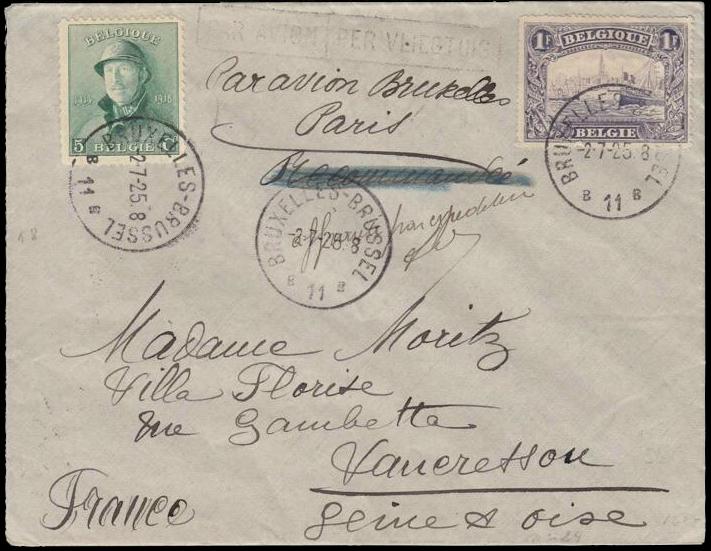 BELGIQUE
1914 1918
5 Cs
BELGIË
PAR AVION PER VLIEGTUIG
1F BELGIQUE 1F
BELGIË
Par avion Bruxelles
Paris
Recommandée
BRUXELLES-BRUSSEL
-2-7-25.8
B 11 B
BRUXELLES-BRUSSEL
-2-7-25.8
B 11 B
BRUXELLES-BRUSSEL
-2-7-25.8
B 11 B
Madame Moritz
Villa Florise
rue Gambetta
Vaucresson
Seine & oise
France